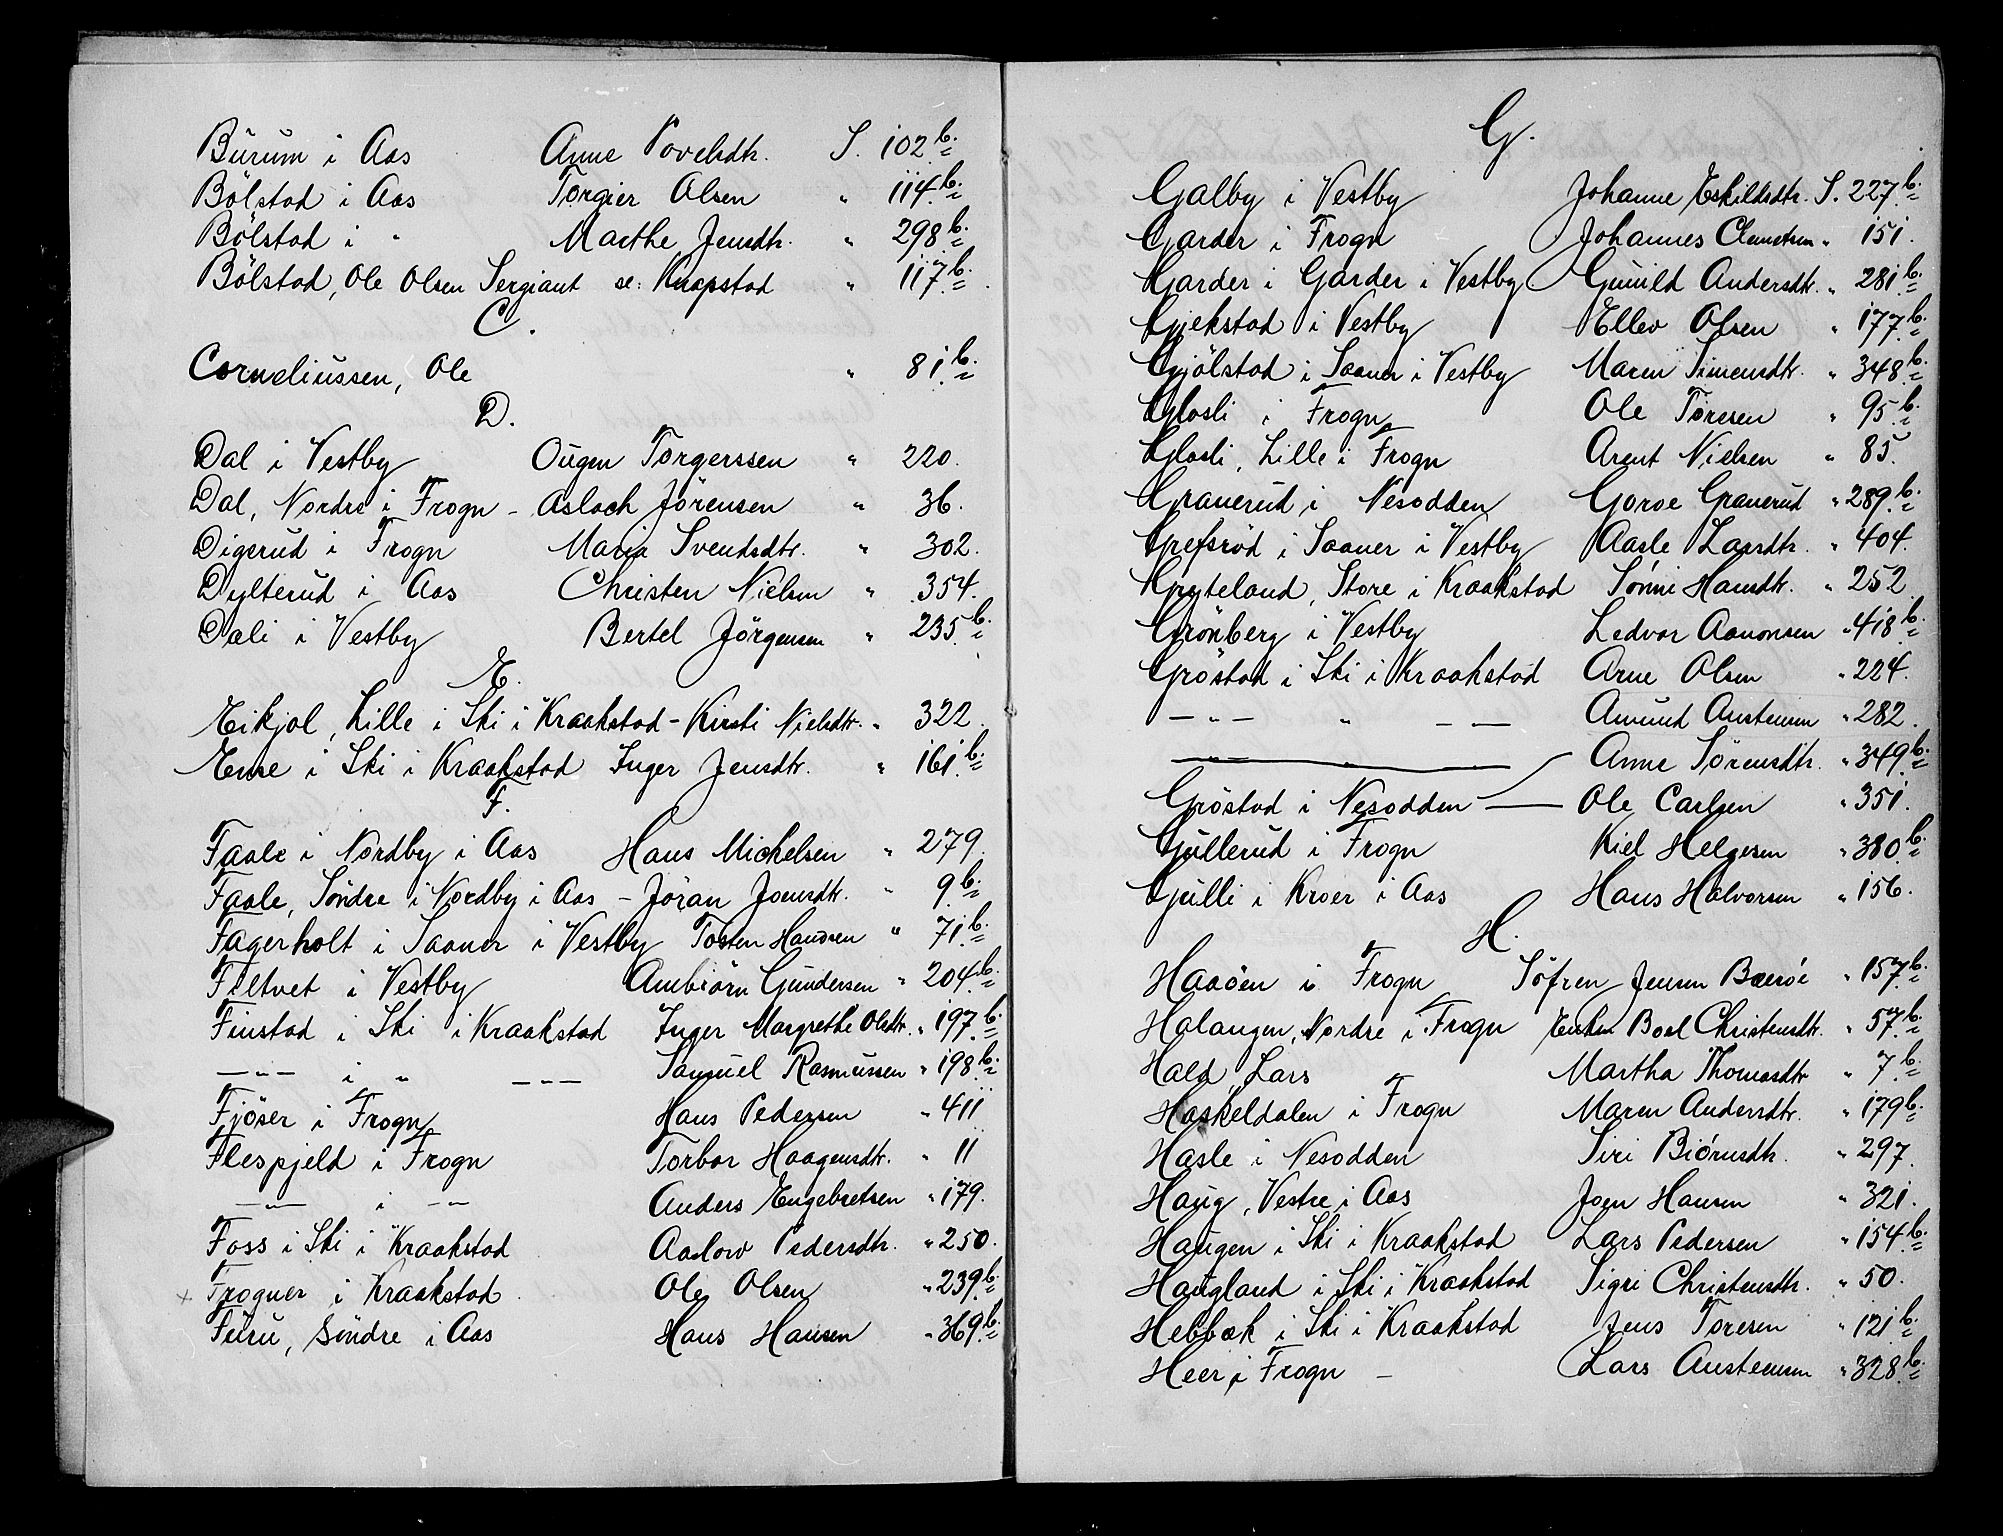 Burum i Aas Anne Povelsdtr. S. 102.b.
Bölstad i Aas Torgier Olsen " 114.b.
Bölstad i " Marthe Jensdtr. " 298.b.
Bölstad, Ole Olsen Sergiant se: Knapstad " 117.b.
C.
Corneliussen, Ole " 81.b.
D.
Dal i Vestby Ougen Torgerssen " 220.
Dal, Nordre i Frogn - Aslach Jörensen " 36.
Digerud i Frogn Maria Svendsdtr. " 302.
Dylterud i Aas Christen Nielsen " 354.
Dæli i Vestby Bertel Jörgensen " 235.b.
E.
Eikjol, Lille i Ski i Kraakstad - Kirsti Nielsdtr. " 322.
Ense i Ski i Kraakstad Inger Jensdtr. " 161.b.
F.
Faale i Nordby i Aas Hans Michelsen " 279.
Faale, Søndre i Nordby i Aas - Jöran Joensdtr. " 9.b.
Fagerholt i Saaner i Vestby Tosten Hansen " 71.b.
Filtvet i Vestby Ambiörn Gundersen " 204.b.
Finstad i Ski i Kraakstad Inger Margrethe Olsdtr. " 197.b.
— " — i " — — — Samuel Rasmussen " 198.b.
Fjöser i Frogn Hans Pedersen " 411
Flespjeld i Frogn Torbor Haagensdtr. " 11
— " — i — " — Anders Engebretsen " 179.
Foss i Ski i Kraakstad Aaslow Pedersdtr. " 250.
x Frogner i Kraakstad Ole Olsen " 239.b.
Furu, Söndre i Aas Hans Hansen " 369.b.
G.
Galby i Vestby Johanne Eskildsdtr. S. 227.b.
Garder i Frogn Johannes Clemetsen " 151.
Garder i Garder i Vestby Gunild Andersdtr. " 281.b.
Gjekstad i Vestby Ellev Olsen " 177.b.
Gjölstad i Saaner i Vestby Maren Simensdtr. " 348.b.
Glosli i Frogn Ole Toresen " 95.b.
Glosli, Lille i Frogn Arent Nielsen " 85.
Granerud i Nesodden Goroe Granerud " 289.b.
Grefsröd i Saaner i Vestby Aasle Larsdtr. " 404.
Gryteland, Store i Kraakstad Sønni Hansdtr. " 252
Grönberg i Vestby Ledvor Aanonsen " 418.b.
Gröstad i Ski i Kraakstad Arne Olsen " 224.
— " — " — — Amund Austensen " 282.
— " — " — Anne Sörensdtr. " 349.b.
Gröstad i Nesodden — Ole Carlsen " 351.
Gullerud i Frogn Kiel Helgesen " 380.b.
Gulli i Kroer i Aas Hans Halvorsen " 156.
H.
Haaöen i Frogn Söfren Jensen Bærøe " 157.b.
Halangen, Nordre i Frogn Enken Boel Christensdtr. " 57.b.
Hald, Lars Martha Thomasdtr " 7.b.
Haskeldalen i Frogn Maren Andersdtr. " 179.b.
Hasle i Nesodden Siri Biörnsdtr. " 297.
Haug, Vestre i Aas Joen Hansen " 321.
Haugen i Ski i Kraakstad Lars Pedersen " 154.b.
Haugland i Ski i Kraakstad Sigri Christensdtr. " 50.
Hebbæk i Ski i Kraakstad Jens Toresen " 121.b.
Heer i Frogn - Lars Austensen " 328.b.